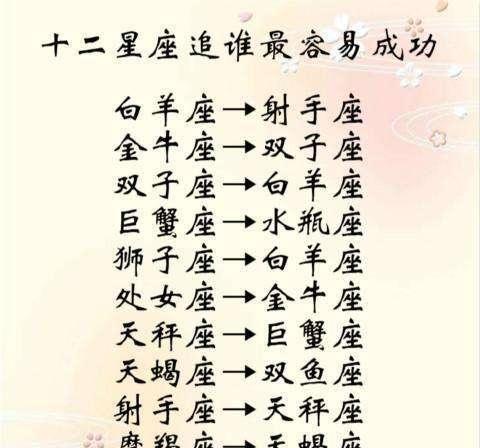 十二星座追谁最容易成功
白羊座→射手座
金牛座→双子座
双子座→白羊座
巨蟹座→水瓶座
狮子座→白羊座
处女座→金牛座
天秤座→巨蟹座
天蝎座→双鱼座
射手座→天秤座
摩羯座→天蝎座